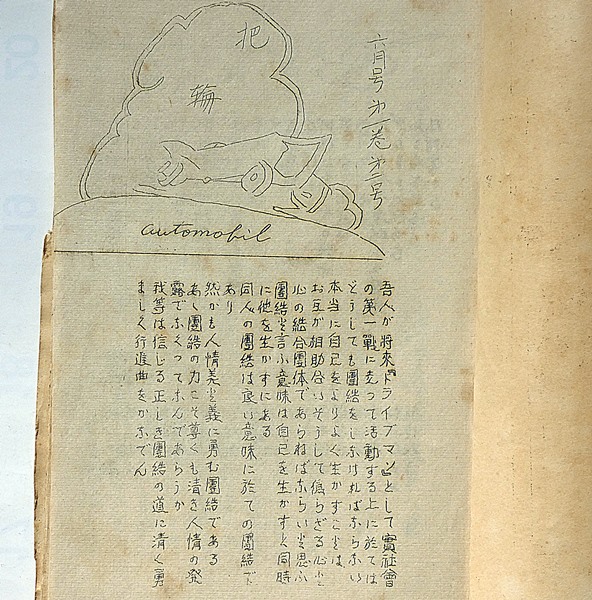 把
輪
六月号 第一巻 第二号
automobil
吾人が将来『ドライブマン』として實社會
の第一戰に立つて活動する上に於ては
どうしても團結をしなければならない
本当に自己をよりよく生かすことは
お互が相助合いそうして偽らざる心と
心の結合團体であらねばならいと思ふ
團結と言ふ意味は自己を生かすと同時
に他を生かすにある
同人の團結は良い意味に於ての團結で
あり
然かも人情美と義に勇む團結である
あゝ團結の力こそ尊くも清き人情の発
露でなくつてなんであらうか
我等は信じる正しき團結の道に清く勇
ましく行進曲をかなでん